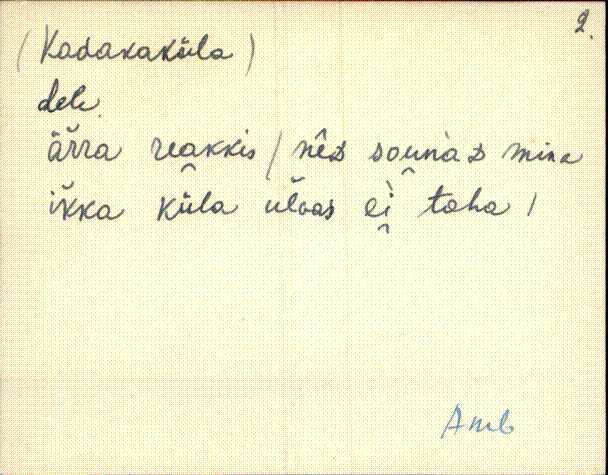 2.
(Kadakaküla)
dele
ärra reakkis / nêᴅ sounaᴅ mina
ikka küla ulvas ei taha /
Amb